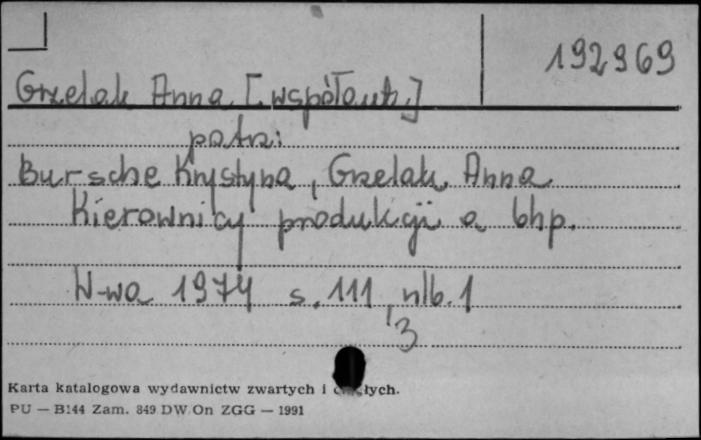 192969
Grzelak Anna [współaut.]
patrz:
Bursche Krystyna, Grzelak, Anna
Kierownicy produkcji a bhp.
W-wa 1974 s. 111, nlb. 1
3
Karta katalogowa wydawnictw zwartych i ciągłych.
PU — B144 Zam. 849 DW On ZGG — 1991